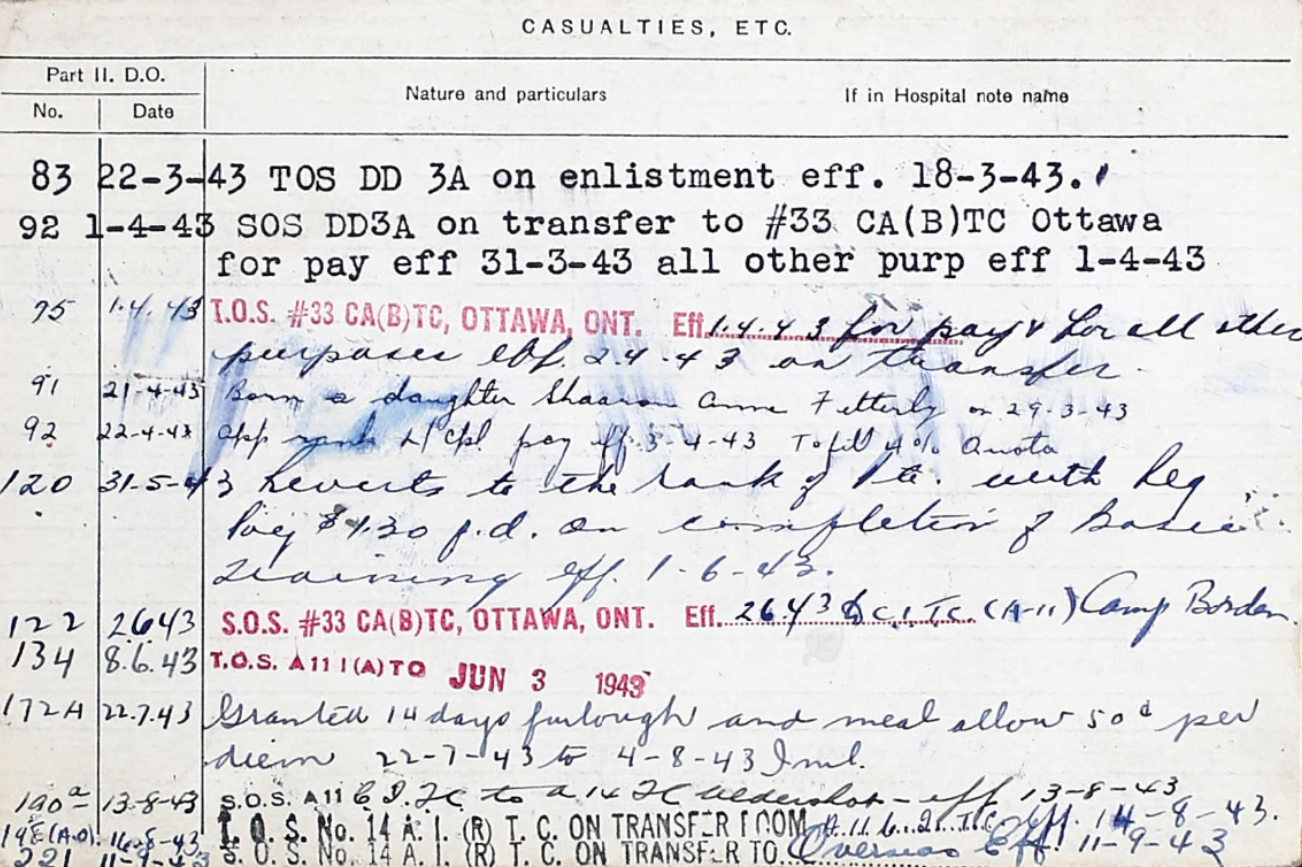 CASUALTIES, ETC.
Part II. D.O.
No. Date Nature and particulars If in Hospital note name
83 22-3-43 TOS DD 3A on enlistment eff. 18-3-43.
92 1-4-43 SOS DD3A on transfer to #33 CA(B)TC Ottawa
for pay eff 31-3-43 all other purp eff 1-4-43
75 1.4.43 T.O.S. #33 CA(B)TC, OTTAWA, ONT. Eff. 1.4.43 for pay & for all other
purposes eff. 2-4-43 on transfer.
91 21-4-43 Born a daughter Shaaron Anne Fetterly on 29-3-43
92 22-4-43 App rank L/Cpl pay eff 3-4-43 To fill 4% Quota
120 31-5-43 Reverts to the rank of Pte. with Reg
Pay $1.30 p.d. on completion of Basic
Training eff. 1-6-43.
122 2643 S.O.S. #33 CA(B)TC, OTTAWA, ONT. Eff. 2643 C.I.T.C. (A-11) Camp Borden.
134 8.6.43 T.O.S. A11 I(A)TC JUN 3 1943
172A 22.7.43 Granted 14 days furlough and meal allow 50¢ per
diem 22-7-43 to 4-8-43 Incl.
190 13-8-43 S.O.S. A11 C.I.TC to A14 TC Aldershot - eff 13-8-43
198(A.O). 16-8-43 T. O. S. No. 14 A. I. (R) T. C. ON TRANSFER FROM A.11 T.C. Eff. 14-8-43.
221 11-9-43 S. O. S. No. 14 A. I. (R) T. C. ON TRANSFER TO Overseas Eff. 11-9-43